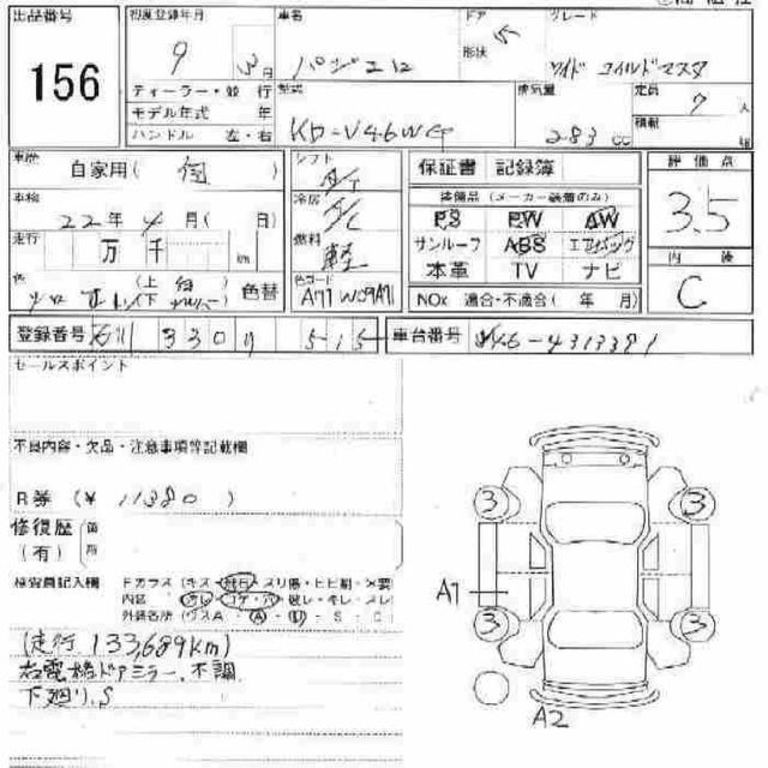 出品番号
156
初度登録年月 9 3月
車名 パジェロ
ドア
形状 5
グレード ワイド フィールドマスタ
ディーラー・並行
モデル年式 年
ハンドル 左・右
型式 KD-V46WG
排気量 283 cc
定員 7 人
積載 kg
車歴 自家用( 個 )
車検 22年4月( 日)
走行 万千 km
色 (上 下 シルバー) 色替
シフト A/T
冷房 A/C
燃料 軽
色コード A71W09A71
保証書 記録簿
装備品(メーカー装着のみ)
PS PW AW
サンルーフ ABS エアバッグ
本革 TV ナビ
NOx 適合・不適合( 年 月)
評価点
3.5
内装
C
登録番号 330 515
車台番号 V46-4313391
セールスポイント
不具内容・欠品・注意事項等記載欄
R券(¥ 11380 )
修復歴
(有) 箇所
検査員記入欄
Fガラス(キズ・飛石・スリ傷・ヒビ割・×要
内装 (ヨレ・コゲ・穴・破レ・キレ・スレ
外装各所 (ヴスA・A・U・S・C
(走行 133,689km)
右電格ドアミラー、不調
下廻り、S
3 3
A1
3 3
A2